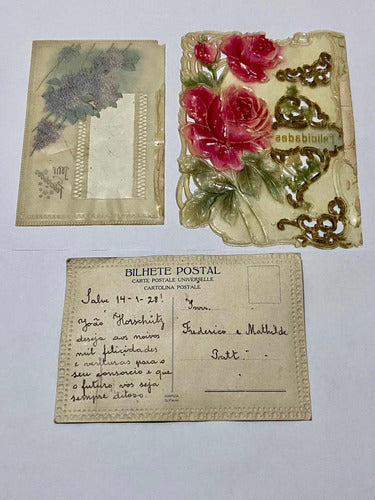 Felicidades
BILHETE POSTAL
CARTE POSTALE UNIVERSELLE
CARTOLINA POSTALE
Salve 14-1-28!
João Horschütz
deseja aos noivos
mil felicidades
e venturas para o
seu consorcio e que
o futuro vos seja
sempre ditoso.
Frederico e Mathilde